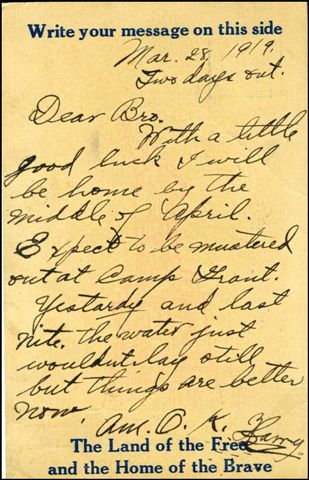 Write your message on this side
Mar. 28, 1919.
Two days out.
Dear Bro.
With a little
good luck I will
be home by the
middle of April.
Expect to be mustered
out at Camp Grant.
Yestardy and last
nite. the water just
wouldnt lay still
but things are better
now. Am. O. K. Harry.
The Land of the Free
and the Home of the Brave